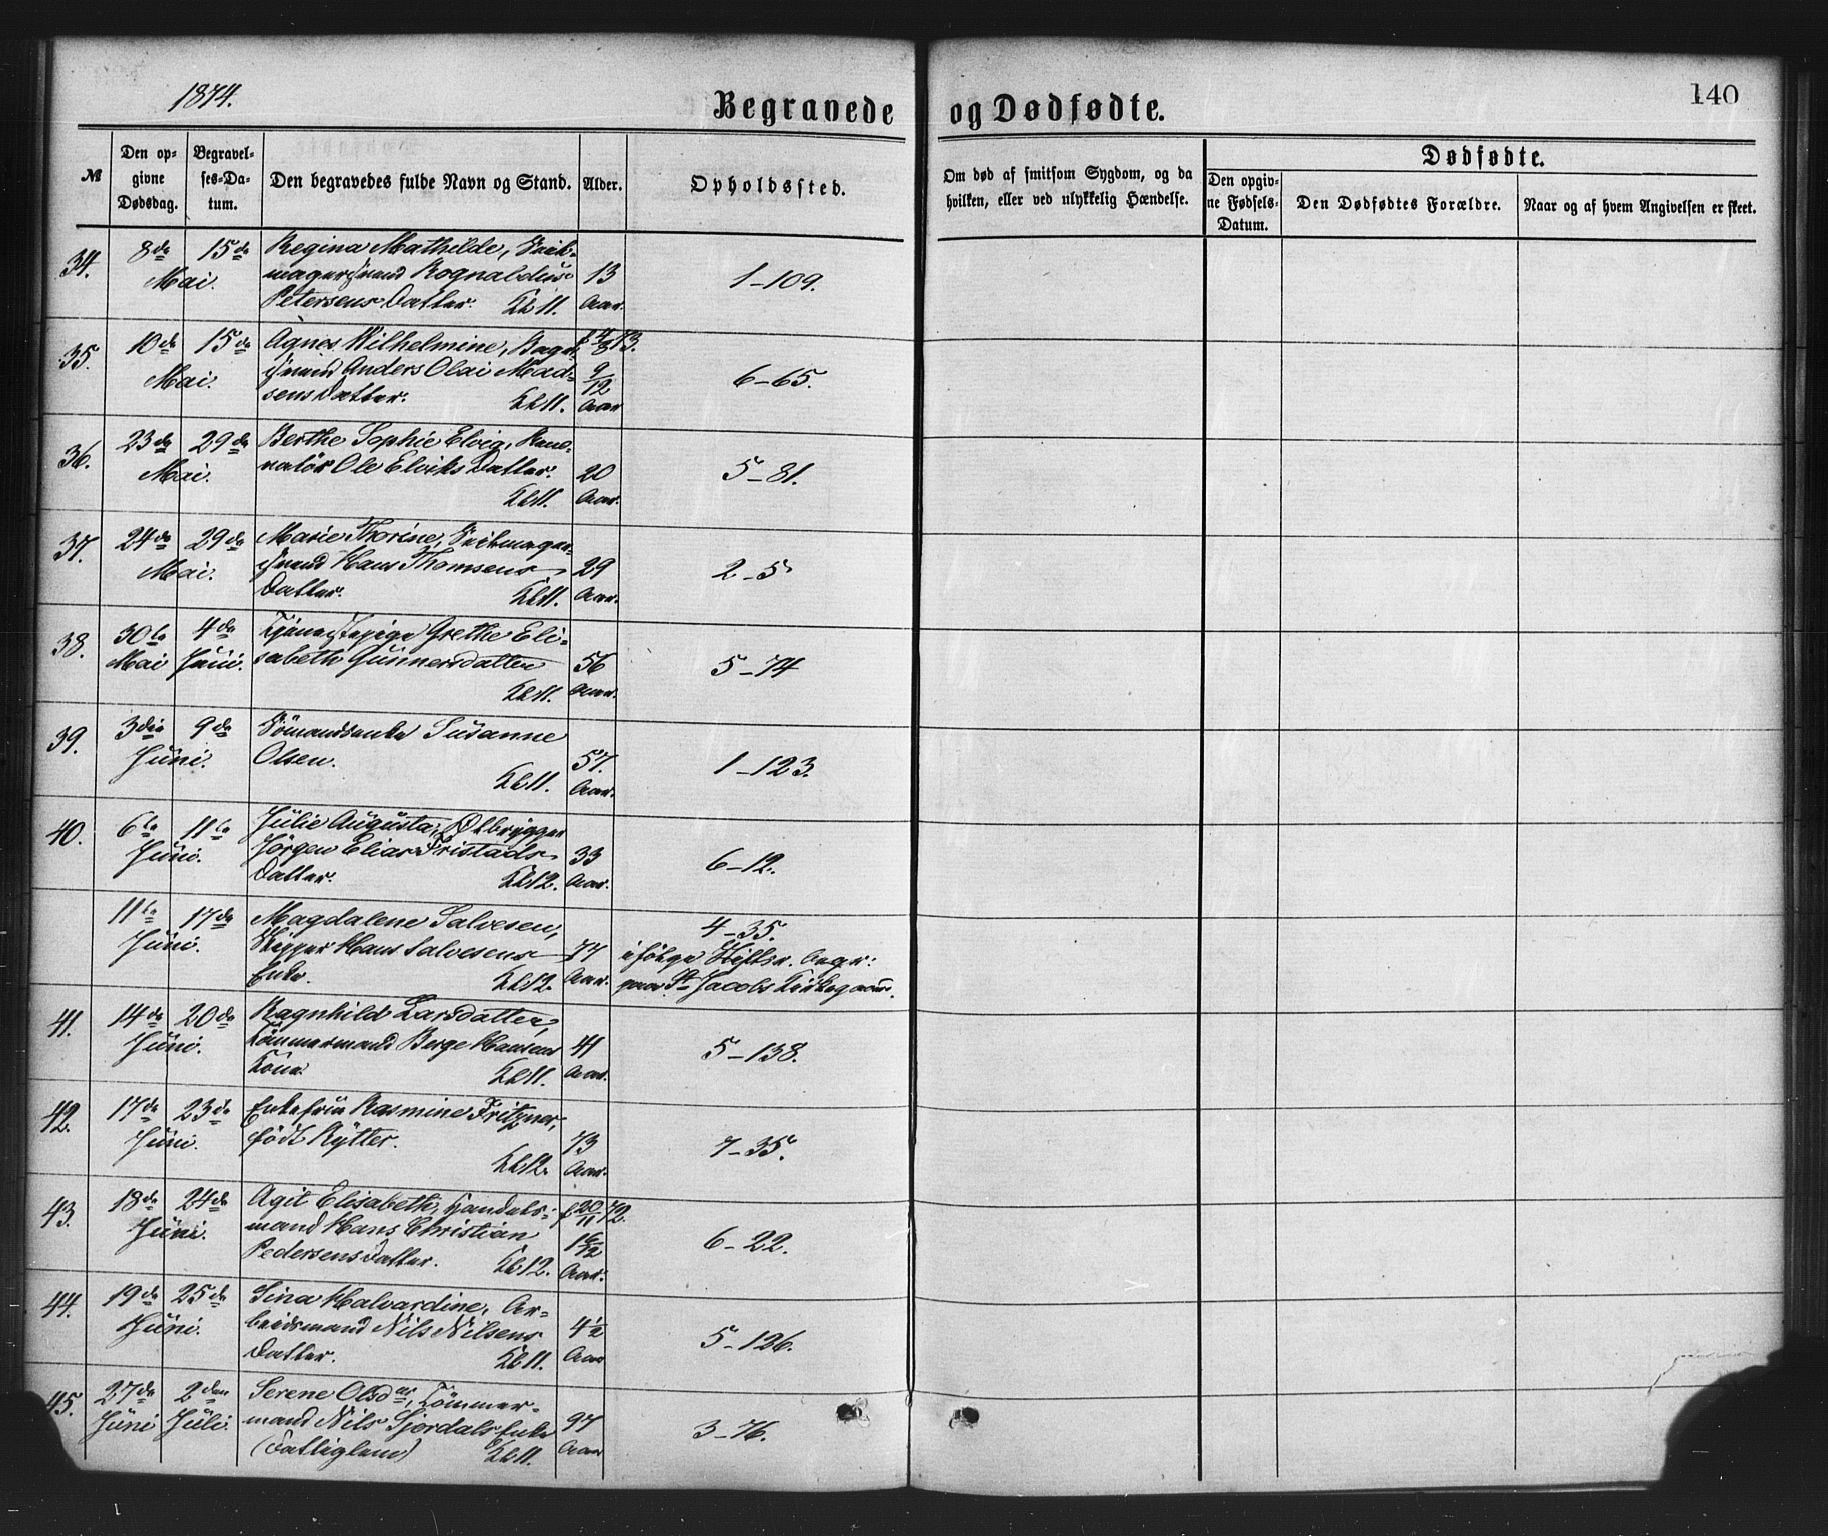 1874.
Begravede og Dødfødte.
140
№
Den opgivne Dødsdag.
Begravelses-Datum.
Den begravedes fulde Navn og Stand.
Alder.
Opholdssted.
Om død af smitsom Sygdom, og da
hvilken, eller ved ulykkelig Hændelse.
Dødfødte.
Den opgivne Fødsels-Datum.
Den Dødfødtes Forældre.
Naar og af hvem Angivelsen er skeet.
34. 8de 15de Mai. Regina Mathilde,
Rognaldus
Petersens Datter. Kl 11. 13 Aar. 1-109.
35. 10de 15de Mai. Agnes Wilhelmine,
Anders Olai Mad-
sens Datter. Kl 11. 9/12 Aar 6-65.
36. 23de 29de Mai. Berthe Sophie Elvig,
Ole Elviks Datter.
Kl 11. 20 Aar. 5-81.
37. 24de 29de Mai. Marie Thorine,
Hans Thomsens
Datter. Kl 11. 29 Aar. 2-5
38. 30te Mai 4de Juni. Tjenestepige Grethe Eli-
sabeth Gunnersdatter
Kl 11. 56 Aar. 5-74
39. 3die 9de Juni. Sømandsenke Susanne
Olsen.
Kl 11. 57. Aar. 1-123.
40. 6te 11te Juni. Julie Augusta, Ølbrygger
Jørgen Elias Tristads
Datter. Kl 12. 33 Aar. 6-12.
11te 17de Juni. Magdalene Salvesen,
Skipper Hans Salvesens
Enke. Kl 12. 77 Aar. 4-35.
ifølge Begr:
paa St Jacobs Kirkegaard.
41. 14de 20de Juni. Ragnhild Larsdatter,
Tømmermand Berge Hansens
Kone. Kl 11. 41 Aar. 5-138.
42. 17de 23de Juni. Enkefrue Rasmine Fritzner,
født Rytter.
Kl 12. 73 Aar. 7-35.
43. 18de 24de Juni. Agit Elisabeth, Handels-
mand Hans Christian
Pedersens Datter. Kl 12. f 20/11 72. 1 6/12 Aar. 6-22.
44. 19de 25de Juni. Sina Halvardine, Ar-
beidsmand Nils Nilsens
Datter. Kl 11. 4½ Aar 5-126.
45. 27de Juni 2den Juli. Serene Olsdatr, Tømmer-
mand Nils Sjordals Enke
(Fattiglem) Kl 11. 97 Aar 3-76.